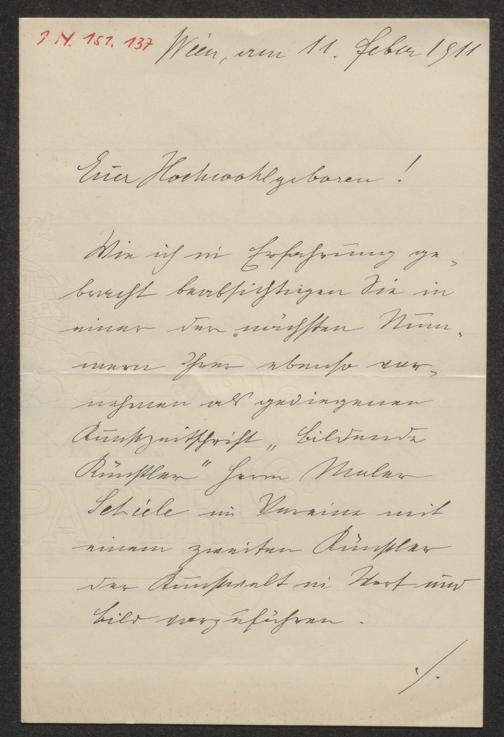 J.N. 151.137
Wien, am 11. Feber 1911
Euer Hochwohlgeboren!
Wie ich in Erfahrung ge-
bracht beabsichtigen Sie in
einer der nächsten Num-
mern Ihrer ebenso vor-
nehmen als gediegenen
Kunstzeitschrift „bildende
Künstler" Herrn Maler
Schiele im Vereine mit
einem zweiten Künstler
der Kunstwelt in Wort und
Bild vorzuführen.
./.